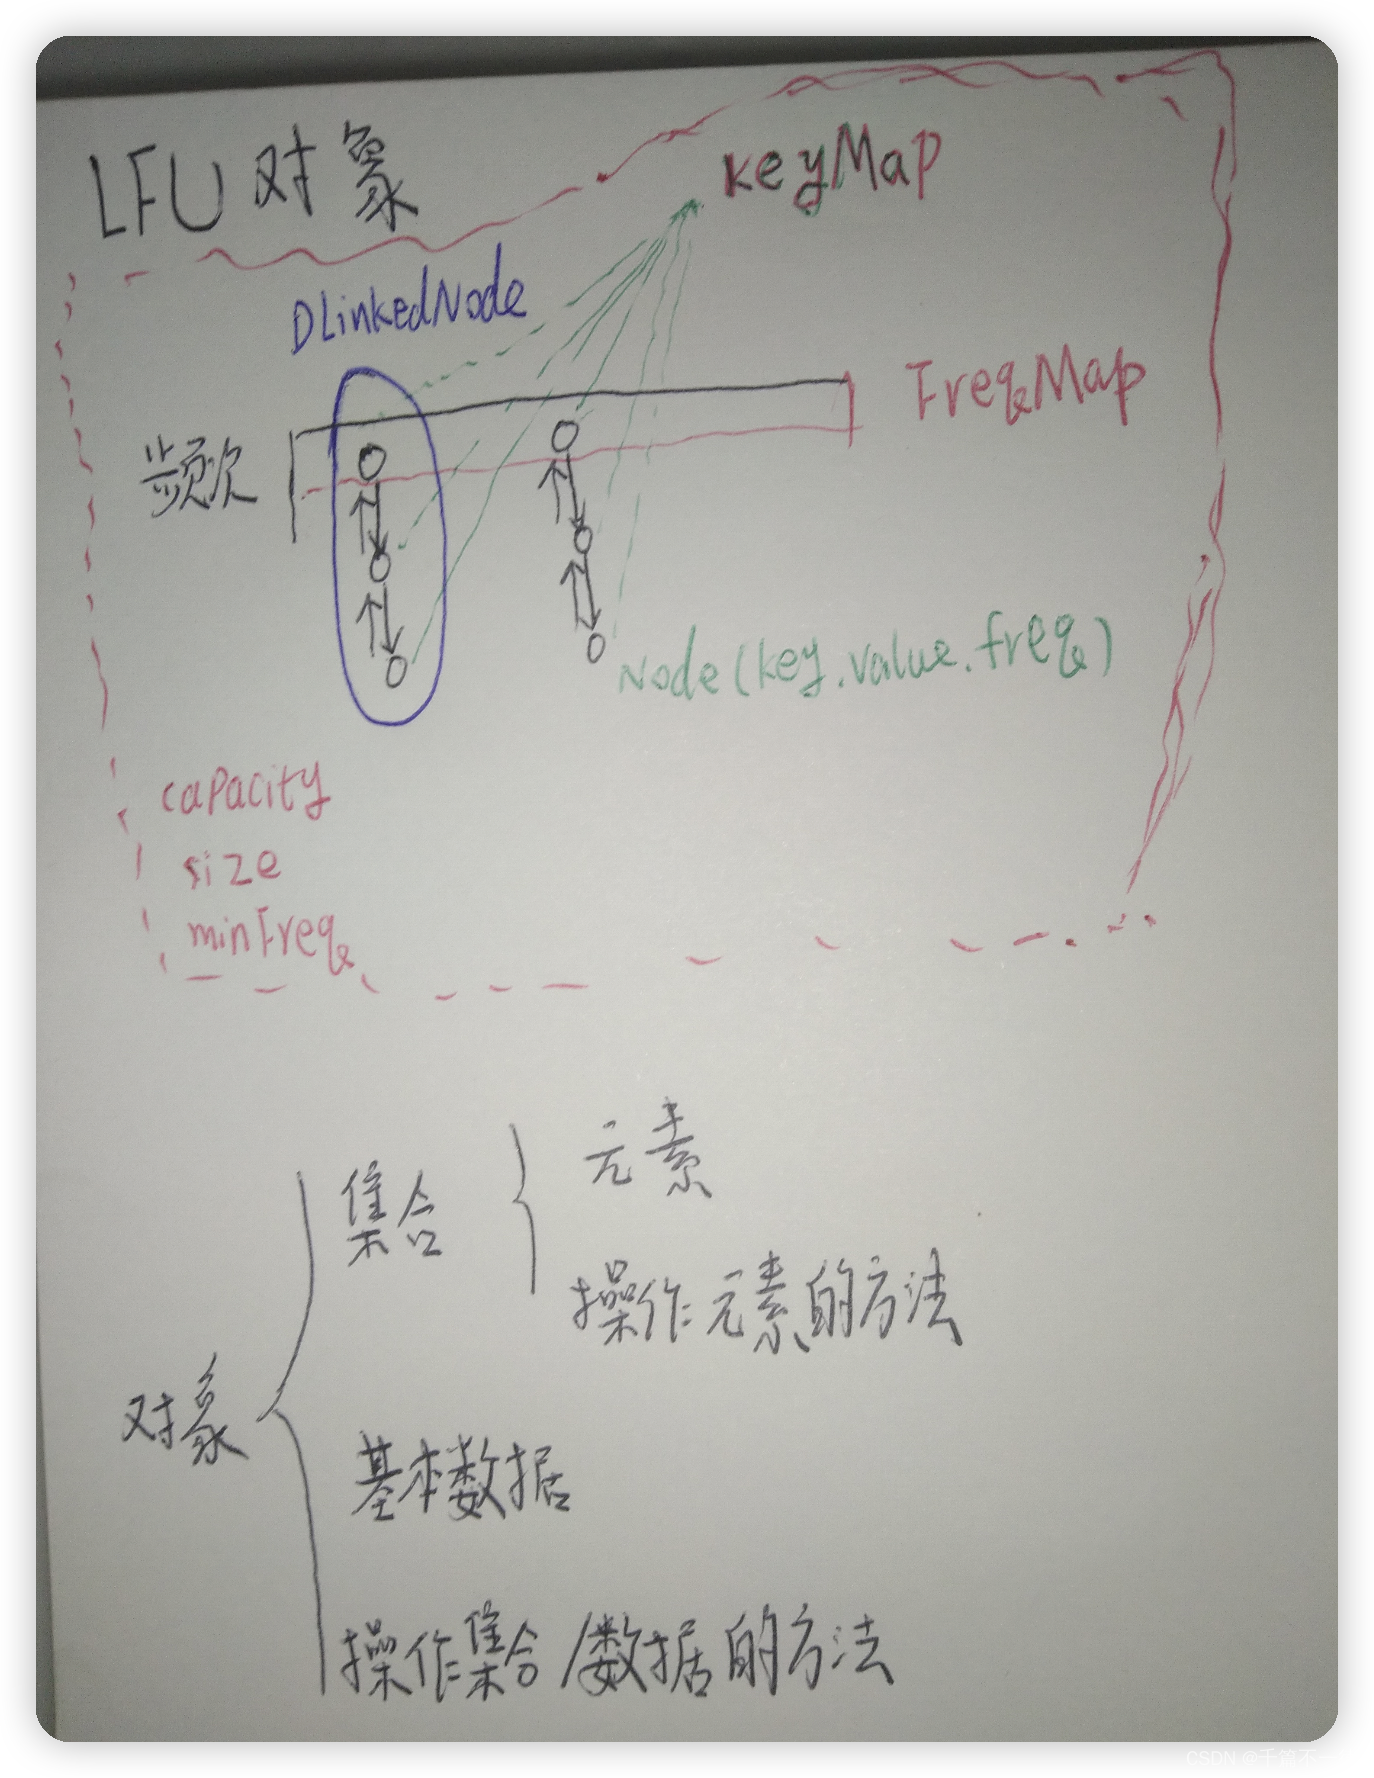 LFU 对象
keyMap
DLinkedNode
FreqMap
频次
Node(key.value.freq)
capacity
size
minFreq
集合
元素
操作元素的方法
对象
基本数据
操作集合/数据的方法